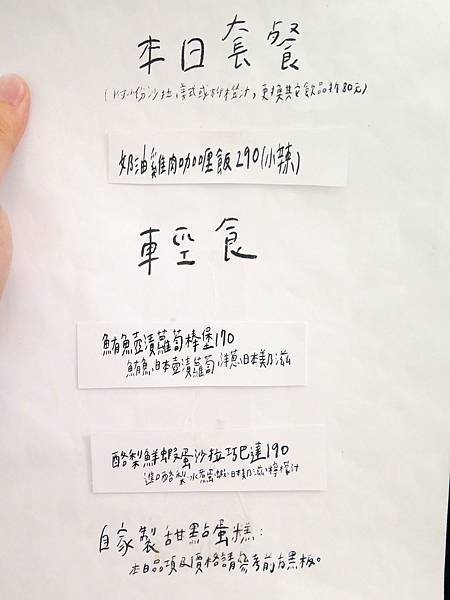 本日套餐
(附小份沙拉,美式或柳橙汁,更換其它飲品折80元)
奶油雞肉咖哩飯290(小辣)
輕食
鮪魚壺漬蘿蔔棒堡170
鮪魚、日本壺漬蘿蔔、洋蔥、日本美乃滋
酪梨鮮蝦蛋沙拉巧巴達190
進口酪梨、水煮蛋、蝦、日本美乃滋、檸檬汁
自家製甜點蛋糕:
本日品項及價格請參考前方黑板。